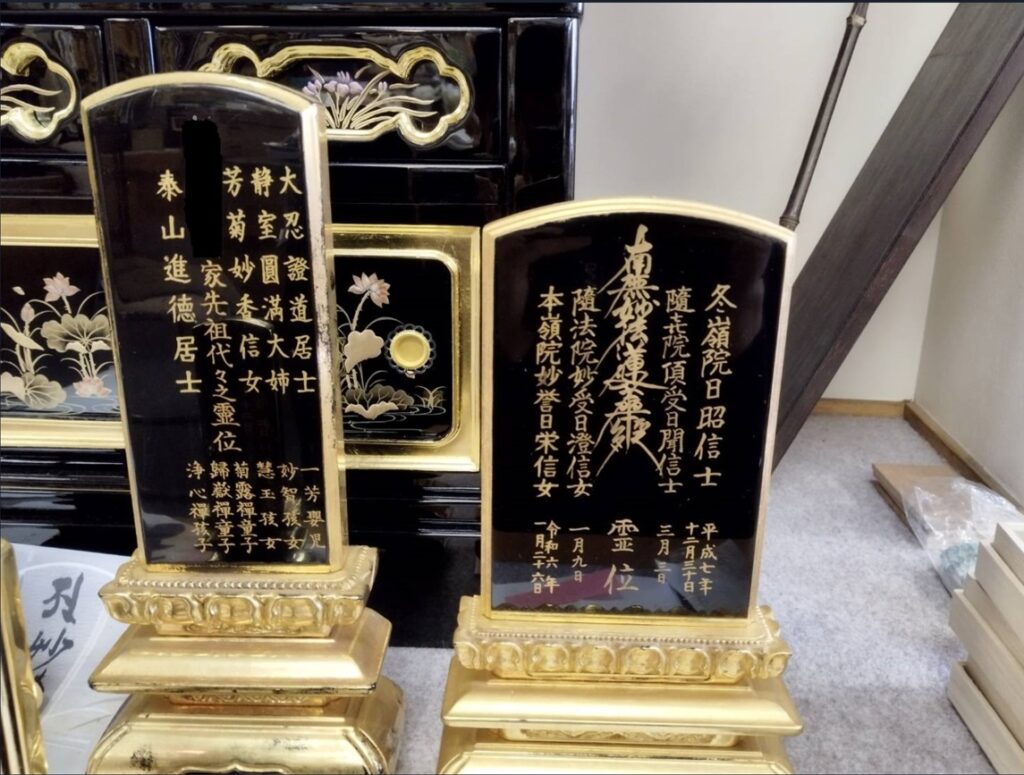 大忍證道居士
静室圓満大姉
芳菊妙香信女
家先祖代々之霊位
泰山進徳居士
一芳嬰児
妙智孩女
慧玉孩女
菊露禪童子
歸嶽禪童子
浄心禪孩子
冬嶺院日昭信士
平成七年
十二月三十日
隨㐂院頂受日開信士
三月三日
南無妙法蓮華経
霊位
隨法院妙受日澄信女
一月九日
本嶺院妙誉日栄信女
令和六年
一月二十六日